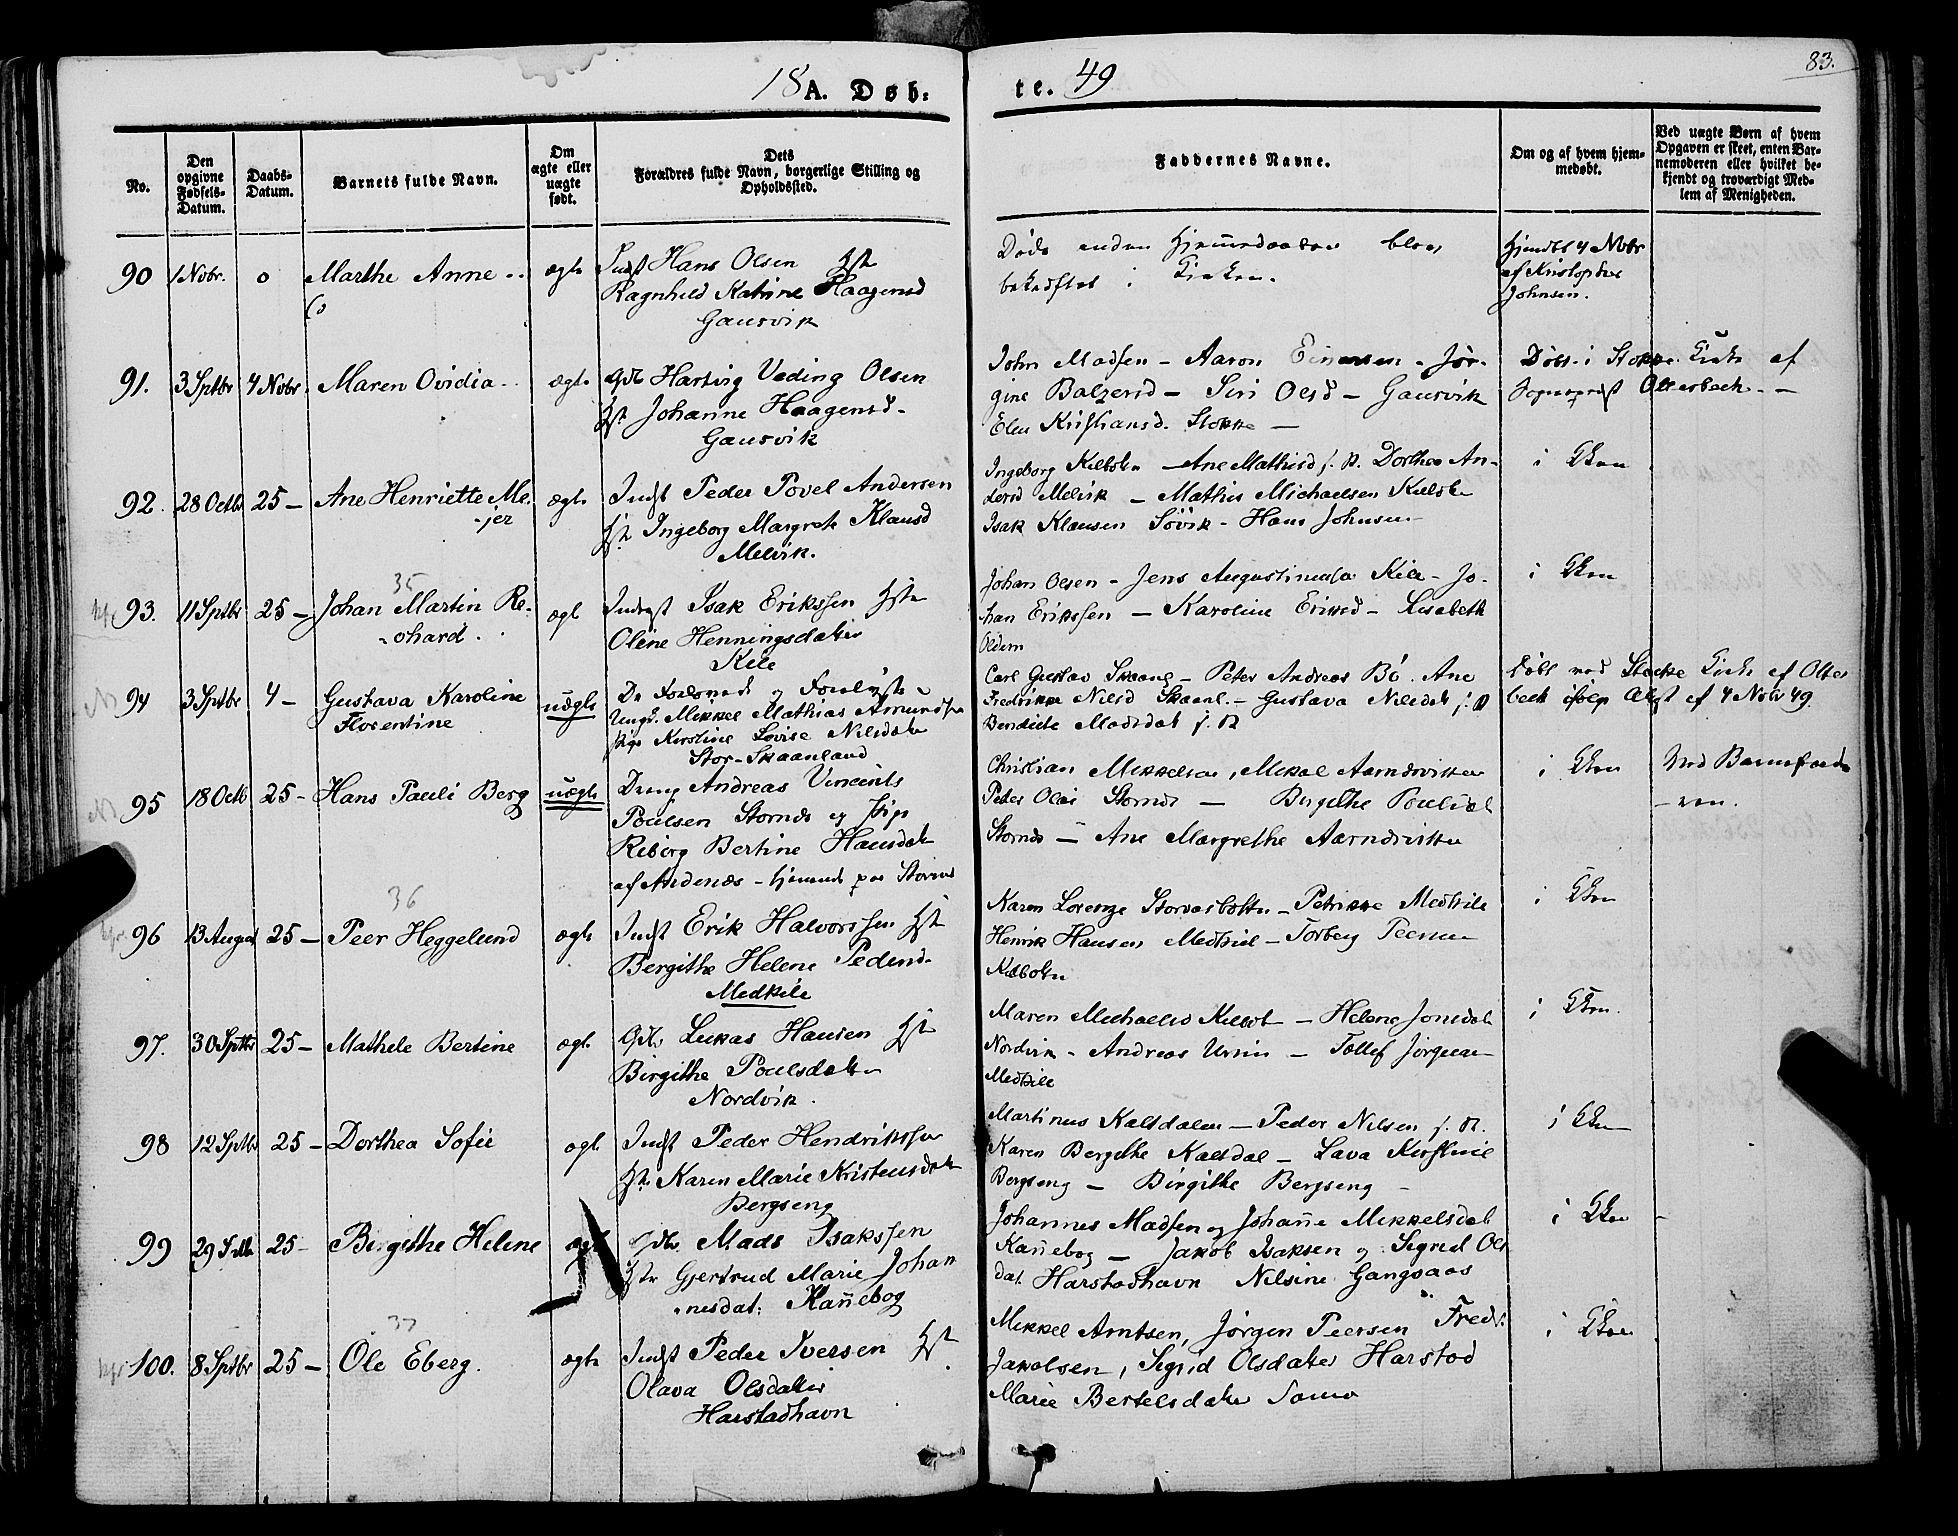 18 A. Døb:
te. 49
83.
No.
Den opgivne Fødsels-Datum.
Daabs-Datum.
Barnets fulde Navn.
Om ægte eller uægte født.
Dets Forældres fulde Navn, borgerlige Stilling og Opholdssted.
Faddernes Navne.
Om og af hvem hjemmedøbt.
Ved uægte Børn af hvem Opgaven er skeet, enten Barnemoderen eller hvilket bekjendt og troværdigt Medlem af Menigheden.
90 1 Nvbr. 0 Marthe Anne ægte Indst Hans Olsen Hst
Ragnhild Katrine Haagensd
Gausvik
Døde inden Hjemmedaaben blev
bekræftet i Kirken.
Hjmdbt 4 Nvbr
af Kristopher
Johnsen.
91. 3 Sptbr 4 Nvbr. Maren Ovidia ægte Gdb Hartvig Veding Olsen
Hst Johanne Haagensd
Gausvik
John Madsen - Aaron Einersen - Jør-
gine Balzersd - Siri Olsd - Gausvik
Elen Kristiansd. Stokke -
Døbt i Stokke Kirke af
Sogneprest Otterbech -
92. 28 Octb 25 - Ane Henriette Me-
jer
ægte Indst Peder Povel Andersen
Hst Ingeborg Margrete Klausd
Melvik.
Ingeborg Kilbotn - Ane Mathisd j. P. Dorthea An-
dersd Melvik - Mathis Michaelsen Kilbotn
Isak Klausen Søvik - Hans Johnsen
i Kken
35
93. 11 Sptbr 25 - Johan Martin Re-
chard.
ægt Inderst Isak Erikssen Hst
Oline Henningsdatter
Kile
Johan Olsen - Jens Augustinussen Kile - Jo-
han Erikssen - Karoline Eriksd - Lisabeth
Oldern
i Kken
94 3 Sptbr 4 - Gustava Karoline
Florentine
uægte
Ungk. Mikkel Mathias Amundsen
Pige Karoline Lovise Nilsdatter
Stor-Skaanland
Carl Gustav Skaanl - Peter Andreas Bø. Ane
Fredrikke Nilsd Skaanl. - Gustava Nilsdat j. P
Bendicte Madsdat j. P
Døbt ved Stokke Kirke af Otter
bech ifølge Attest af 4 Nvbr 49.
95 18 Octb 25 - Hans Pauli Berg uægte Dreng Andreas Vincents
Poulsen Stornes og Pige
Reberg Bertine Hansdatter
af Andenæs - hjemme paa Stornes
Christian Mikkelsen, Mikal Aarndvitten
Peter Olai Stornes - Bergithe Poulsdat
Stornes - Ane Margrethe Aarndvitten
i Kken
Ved Barnefade-
ren.
36
96 13 August 25 - Peer Heggelund ægte Indst Erik Halvorssen Hst
Bergithe Helene Pedersd.
Medkile
Karen Lorentze Storvasbotn - Petrikke Medkile
Henrik Hansen Medkile - Torberg Peersen
Kilbotn
i Kken
97. 30 Sptbr 25 - Mathele Bertine ægt. Gdb. Lukas Hansen Hst
Birgithe Poulsdatter
Nordvik.
Maren Michaelsd Kilbot - Helene Jonsdat
Nordvik - Andreas Ursin - Tollef Jørgensen
Medkile
i Kken.
98 12 Sptbr 25 - Dorthea Sofie ægte Indst Peder Hendrikssen
Hst. Karen Marie Kristensdatter
Bergseng
Martinus Kaltdalen - Peder Nilsen j. P.
Karen Bergethe Kaltdal - Lava Kirstine
Bergseng - Birgithe Bergseng -
i Kken
99 29 Sptbr 25 - Birgithe Helene ægte Gdb. Mads Isakssen
Hst Gjertrud Marie Johan
nesdat: Kannebog
Johannes Madsen og Johanne Mikkelsdat
Kannebog - Jakob Isaksen og Sigrid Ols
dat. Harstadhavn Nilsine Gangsaas
i Kken
37
100. 8 Sptbr 25 - Ole Eberg. ægte Indst Peder Iversen Hst
Olava Olsdatter
Harstadhavn
Mikkel Arntsen, Jørgen Peersen Fredr.
Jakobsen, Sigrid Olsdatter Harstad
Marie Bertelsdatter Sama
i Kken